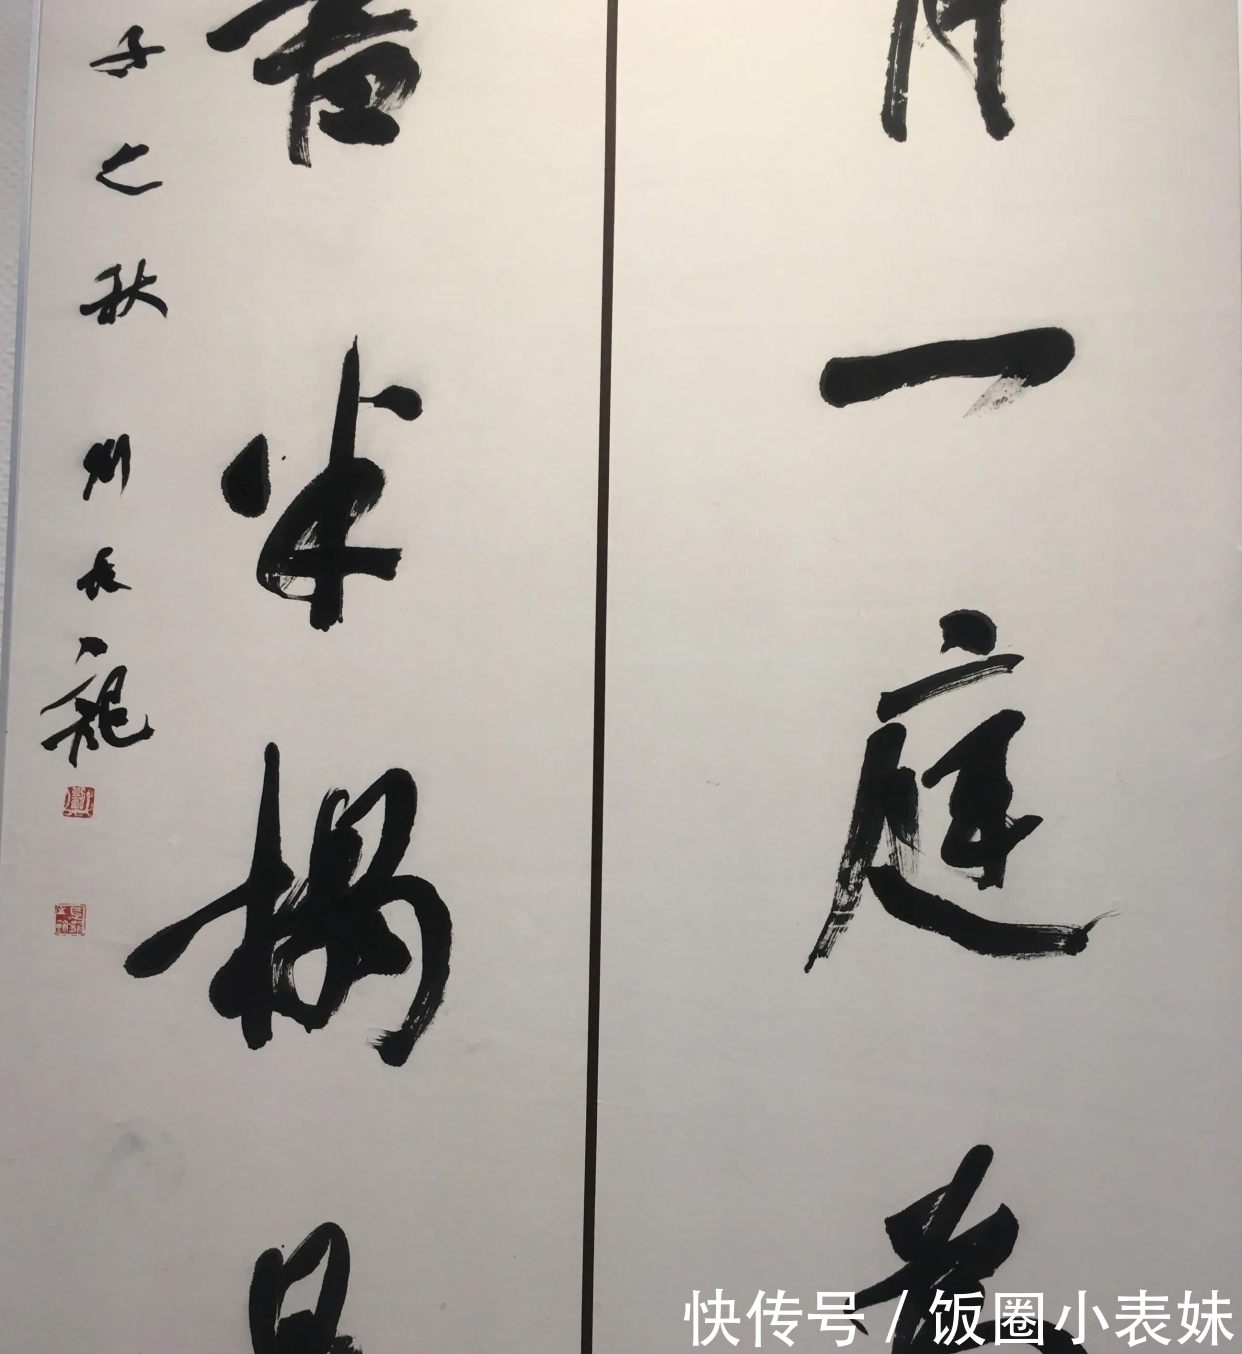 月一庭為
書半榻是
子之秋 刘長龍
快传号 / 饭圈小表妹